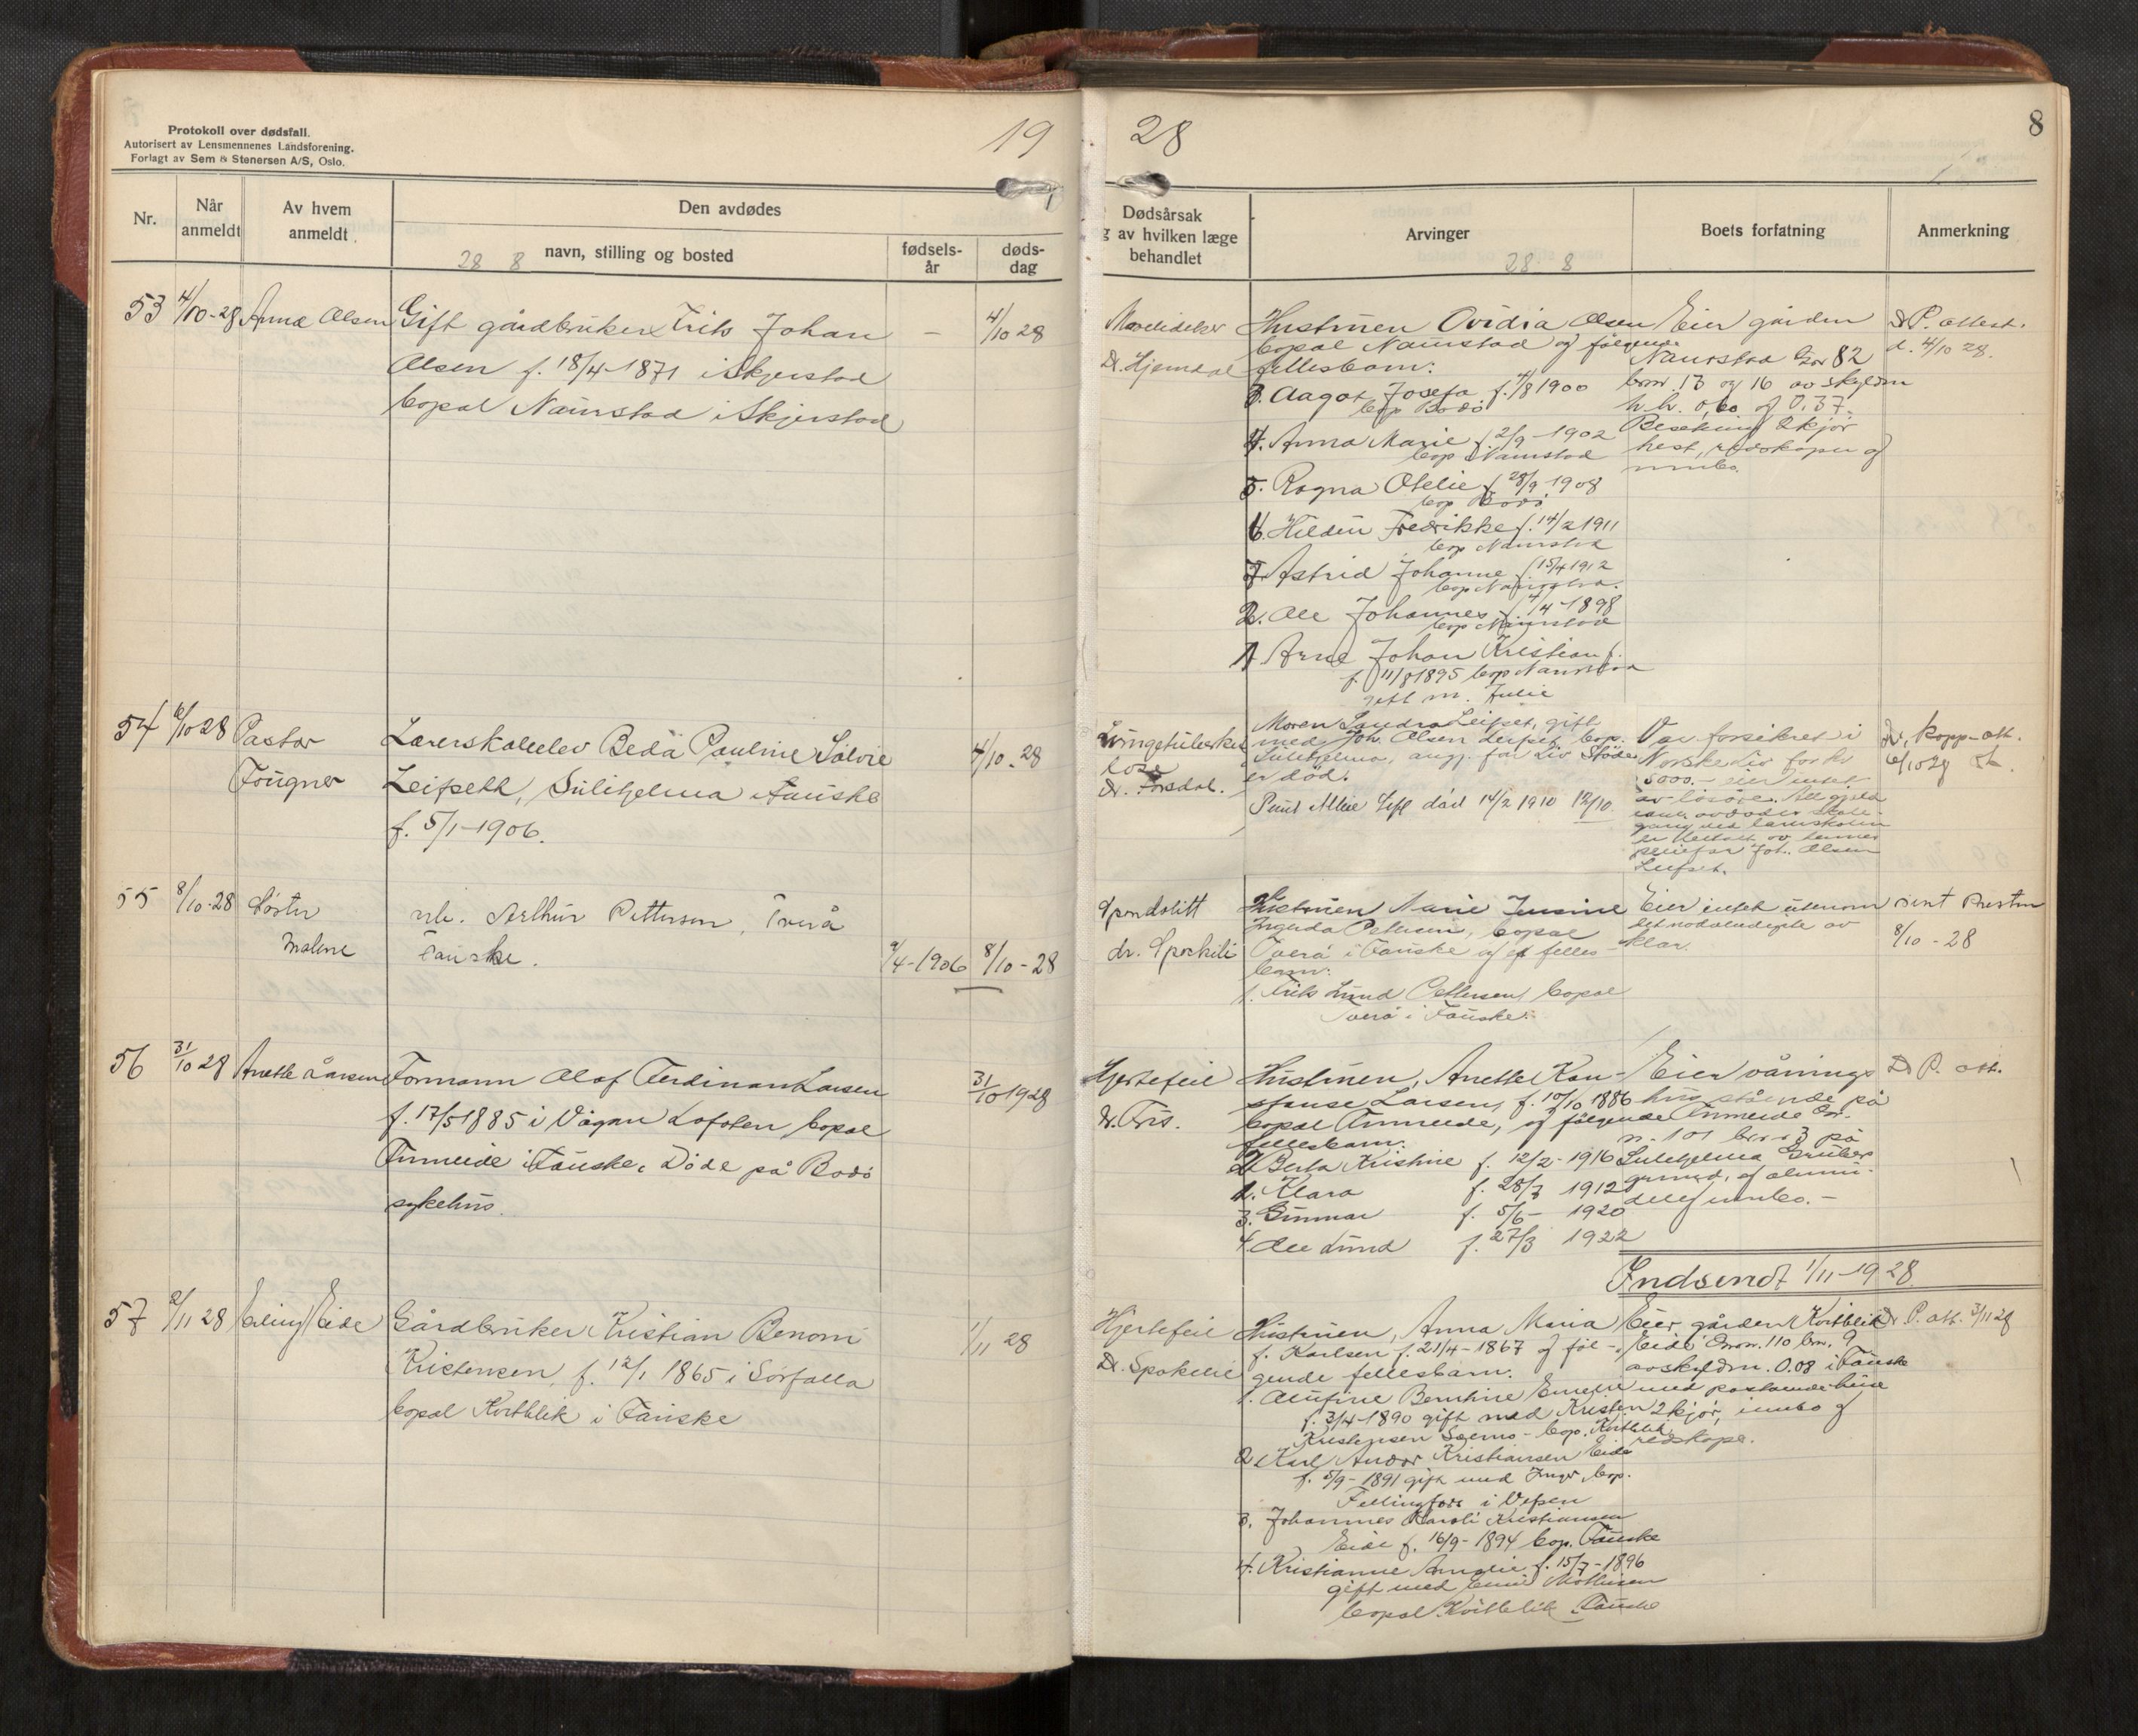 Protokoll over dødsfall.
Autorisert av Lensmennenes Landsforening.
Forlagt av Sem & Stenersen A/S, Oslo.
19
28
8
Nr.
Når anmeldt
Av hvem anmeldt
Den avdødes
navn, stilling og bosted
28 8
fødsels-år
døds-dag
Dødsårsak
g av hvilken læge
behandlet
Arvinger
28 8
Boets forfatning
Anmerkning
53 4/10-28 Anna Olsen
Gift gårdbruker Frits Johan
Olsen f. 18/4-1871 i Skjerstad
bopæl Naurstad i Skjerstad
—
4/10 28
Dr. Hjemdal
Hustruen Ovidia Olsen
bopæl Naurstad og følgende
fellesbarn:
3. Aagot Josefa f. 1/8 1900
bop Bodø
4. Anna Marie f. 2/9-1902
bop Naurstad
5. Ragna Otelie f. 28/9 1908
bop Bodø
6. Fredrikke f. 14/2 1911
bop Naurstad
7. Astrid Johanne f 15/4 1912
bop Naurstad.
2. Ole Johannes f. 1/4-1898
bop Naurstad
1. Arne Johan Kristian f.
f. 11/8 1895 bop Naurstad
gift m. Julie
Eier gården
Naurstad Gnr 82
brnr. 13 og 16 av skyldm
h.h. 0,60 og 0.37.
Besetning 2 kjør
hest, redskaper og
innbo.
D.P. attest.
d. 4/10 28.
54 6/10 28 Pastor
Fougner
Lærerskoleelev Beda Pauline Solvie
Leifseth, Sulitjelma i Fauske
f. 5/1-1906.
4/10-28
Lungetuberku
lose
Moren Sandra Leifset, gift
med Joh. Olsen Leifset, bop.
Sulitjelma,
er død.
14/2 1910 12/10
Var forsikret i
Norske Liv for kr
5000.- eier intet
av løsøre. All gjeld
er betalt av hennes
pleiefar Joh. Olsen
Leifset.
6/10 28
55 8/10-28 Søster
Malene
nh. Arthur Pettersen, Tverå
Fauske.
9/4-1906
8/10-28
Hustruen Marie Jensine
Ingerda Pettersen, bopæl
Tverå i Fauske og et felles-
barn:
1. Frits Lund Pettersen, bopæl
Tverå i Fauske.
Eier intet utenom
det nødvendigste av
klær.
8/10-28
56 31/10 28 Anette Larsen
Formann Olaf Ferdinan Larsen
f. 17/5 1885 i Vågan Lofoten, bopæl
Finneide i Fauske. Døde på Bodø
sykehus.
31/10 1928
Hjertefeil
Hustruen, Anette Kon-
stanse Larsen, f. 10/10 1886
bopæl Finneide, og følgende
fellesbarn:
2. Berta Kristine f. 12/2-1916
1. Klara f. 28/7 1912
3. Gunnar f. 5/6- 1920
4. Ole Lund f. 27/3 1922
Eier vånings
hus stående på
Finneide Gnr.
n. 101 brnr 3 på
Sulitjelma Grubers
grunn, og
innbo.-
D.P. att.
Indsendt 1/11-1928.
57 2/11 28 Erling Eide
Gårdbruker Kristian Benoni
Kristensen, f. 12/1 1865 i Sørfolla
bopæl Kvitblik i Fauske
1/11 28
Hjertefeil
Dr. Spokelie
Hustruen, Anna Maria
f. Karlsen f. 21/4-1867 og føl-
gende fellesbarn:
1. Alufine Bernhine Emelie
f. 3/4-1890 gift med Kristen
Kristensen - bop. Kvitblik
2 Karl Andor Kristiansen Eide
f. 5/9-1891 gift med Inger, bop.
Fellingfors i Vefsen
3. Johannes Karoli Kristiansen
Eide f. 16/9-1894 bop. Fauske
4. Kristianne Amalie f. 15/7-1896
gift med Emil Mathisen
bopæl Kvitblik Fauske
Eier gården Kvitblik
Eide Gnr. 110 brn. 9
avskyldm. 0.08 i Fauske
med påstående huse
2 kjør, innbo og
redskape.
D. P. att. 3/11 28